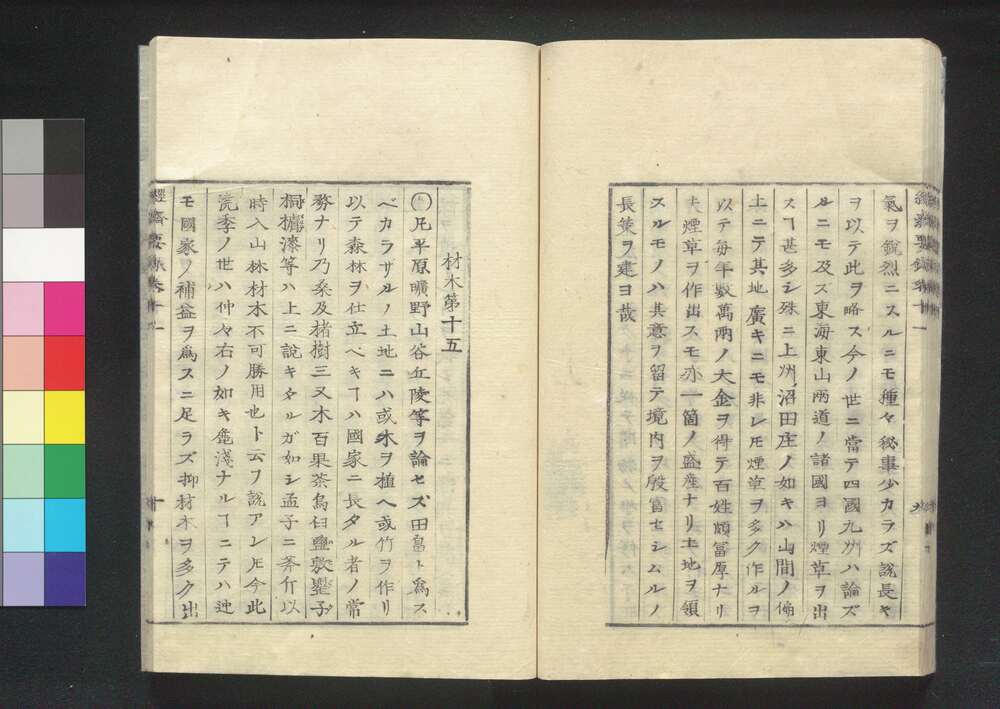 氣ヲ鋭烈ニスルニモ種々秘事少カラズ説長キ
ヲ以テ此ヲ略ス今ノ世ニ當テ四國九州ハ論ズ
ルニモ及ズ東海東山兩道ノ諸國ヨリ煙草ヲ出
スヿ甚多シ殊ニ上州沼田庄ノ如キハ山間ノ
土ニテ其地廣キニモ非レ𪜈煙草ヲ多ク作ルヲ
以テ毎年數萬兩ノ大金ヲ得テ百姓頗冨厚ナリ
煙草ヲ作出スモ亦一箇ノ盛産ナリ土地ヲ領
スルモノハ其意ヲ留テ境内ヲ殷富セシムルノ
長策ヲ建ヨ哉
材木第十五
〇凡平原曠野山谷丘陵等ヲ論セズ田畠ト爲ス
ベカラザルノ土地ニハ或木ヲ植ヘ或竹ヲ作リ
以テ森林ヲ仕立ベキヿハ國家ニ長タル者ノ常
務ナリ乃桒及楮樹三叉木百果茶烏臼鹽敷
桐漆等ハ上ニ説キタルガ如シ孟子ニ斧斤以
時入山林材木不可勝用也ト云フ説アレ𪜈今此
澆季ノ世ハ仲々右ノ如キ麁淺ナルヿニテハ
モ國家ノ補益ヲ爲スニ足ラズ抑材木ヲ多ク出
經濟要録卷十一